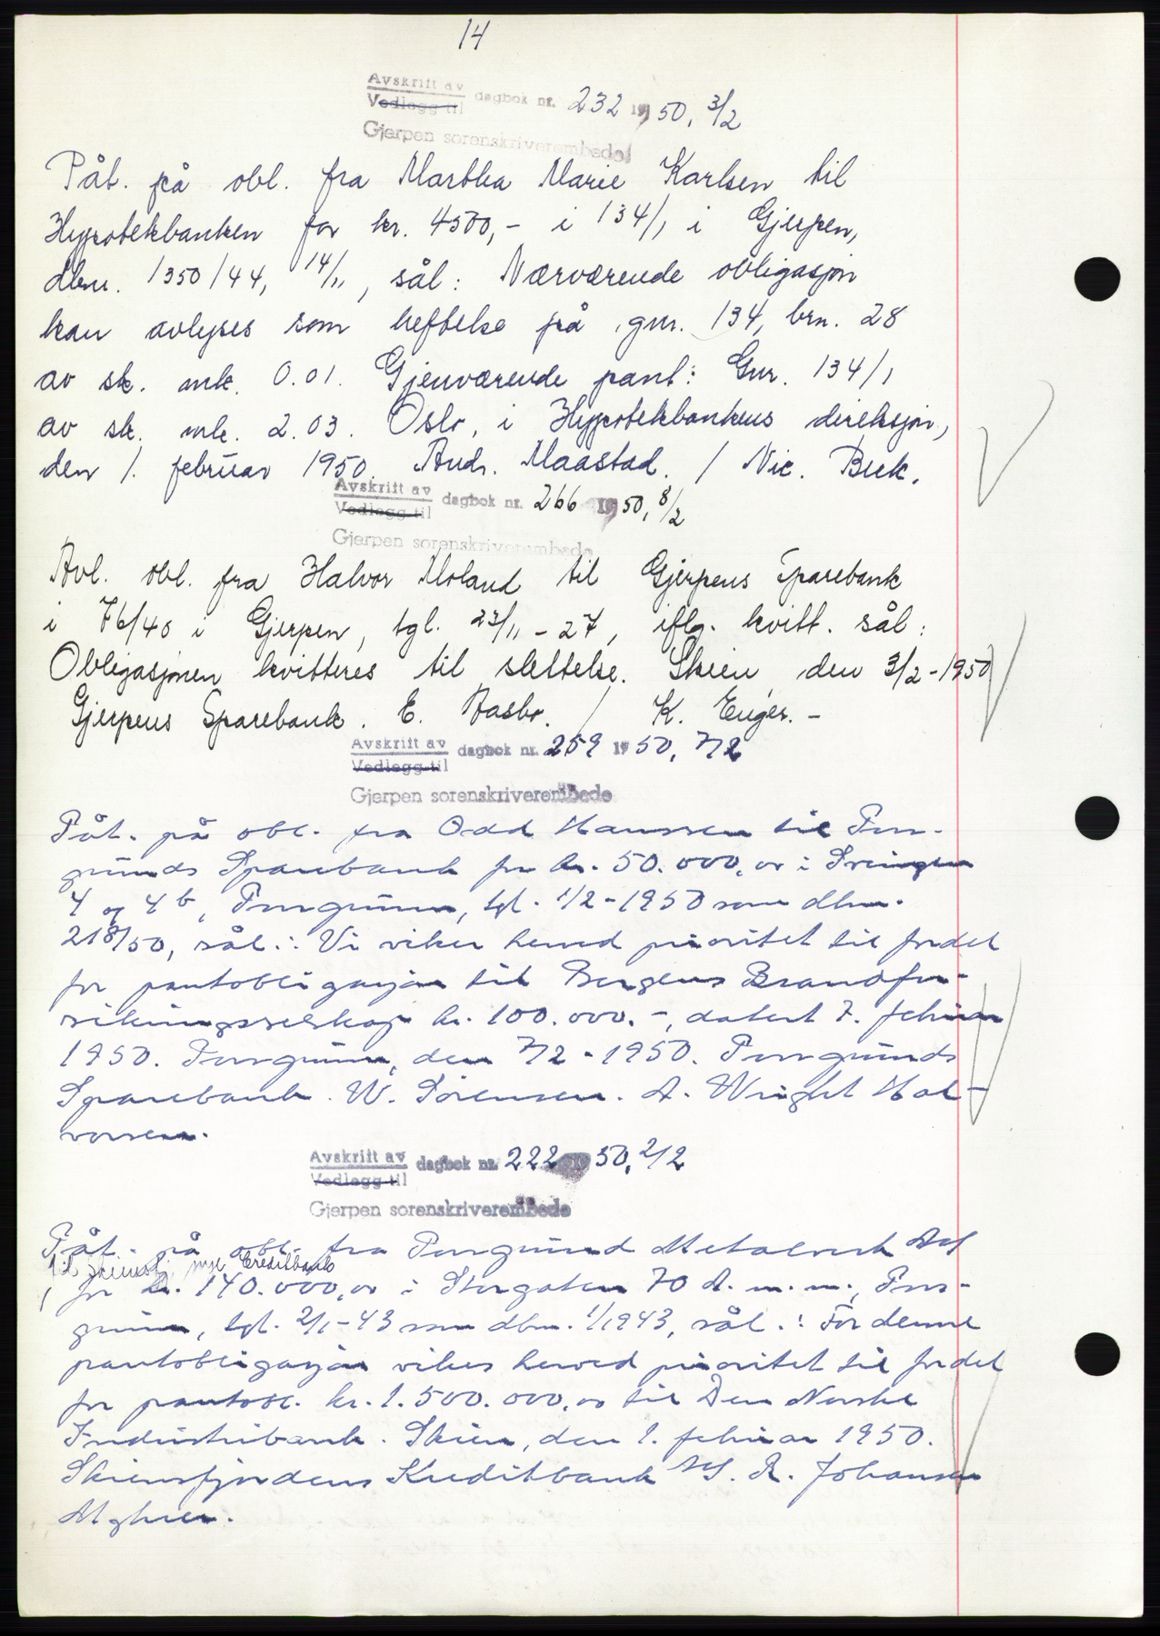 14
Avskrift av
Vedlegg til dagbok nr. 232 1950, 3/2
Gjerpen sorenskriverembede
Påt. på obl. fra Martha Marie Karlsen til
Hypotekbanken for kr. 4500,- i 134/1 i Gjerpen,
dbnr. 1350/44, 14/11, sål: Nærværende obligasjon
kan avlyses som heftelse på gnr. 134, brn. 28
av sk. mk. 0.01. Gjenværende pant: Gnr. 134/1
av sk. mk. 2.03. Oslo, i Hypotekbankens direksjon,
den 1. februar 1950. Andr. Maastad. / Nic. Buck.
Avskrift av
Vedlegg til dagbok nr. 266 1950, 8/2
Gjerpen sorenskriverembede
Avl. obl. fra Halvor Moland til Gjerpens Sparebank
i 76/40 i Gjerpen, tgl. 23/11-27, iflg. kvitt. sål:
Obligasjonen kvitteres til slettelse. Skien, den 3/2-1950
Gjerpens Sparebank. E. Aasbo. / K. Enger. -
Avskrift av
Vedlegg til dagbok nr. 259 1950, 7/2
Gjerpen sorenskriverembede
Påt. på obl. fra Odd Hanssen til Pors-
grunds Sparebank for kr. 50.000,oo i Svingen
4 og 4b, Porsgrunn, tgl. 1/2-1950 som dbnr.
218/50, sål.: Vi viker herved prioritet til fordel
for pantobligasjon til Bergens Brandfor-
sikringsselskap kr. 100.000.-, datert 7. februar
1950. Porsgrunn, den 7/2-1950. Porsgrunds
Sparebank. W. Sørensen. A. Wright Hal-
vorsen.
Avskrift av
Vedlegg til dagbok nr. 222 1950, 2/2
Gjerpen sorenskriverembede
Påt. på obl. fra Porsgrund Metalverk A/S
til Skiensfj. Kreditbank
for kr. 140.000,oo i Storgaten 70 A. m.m., Pors-
grunn, tgl. 2/1-43 som dbnr. 1/1943, sål.: For denne
pantobligasjon vikes herved prioritet til fordel
for pantobl. kr. 1.500.000,oo til Den Norske
Industribank. Skien, den 1. februar 1950.
Skiensfjordens Kreditbank A/S. R. Johansen